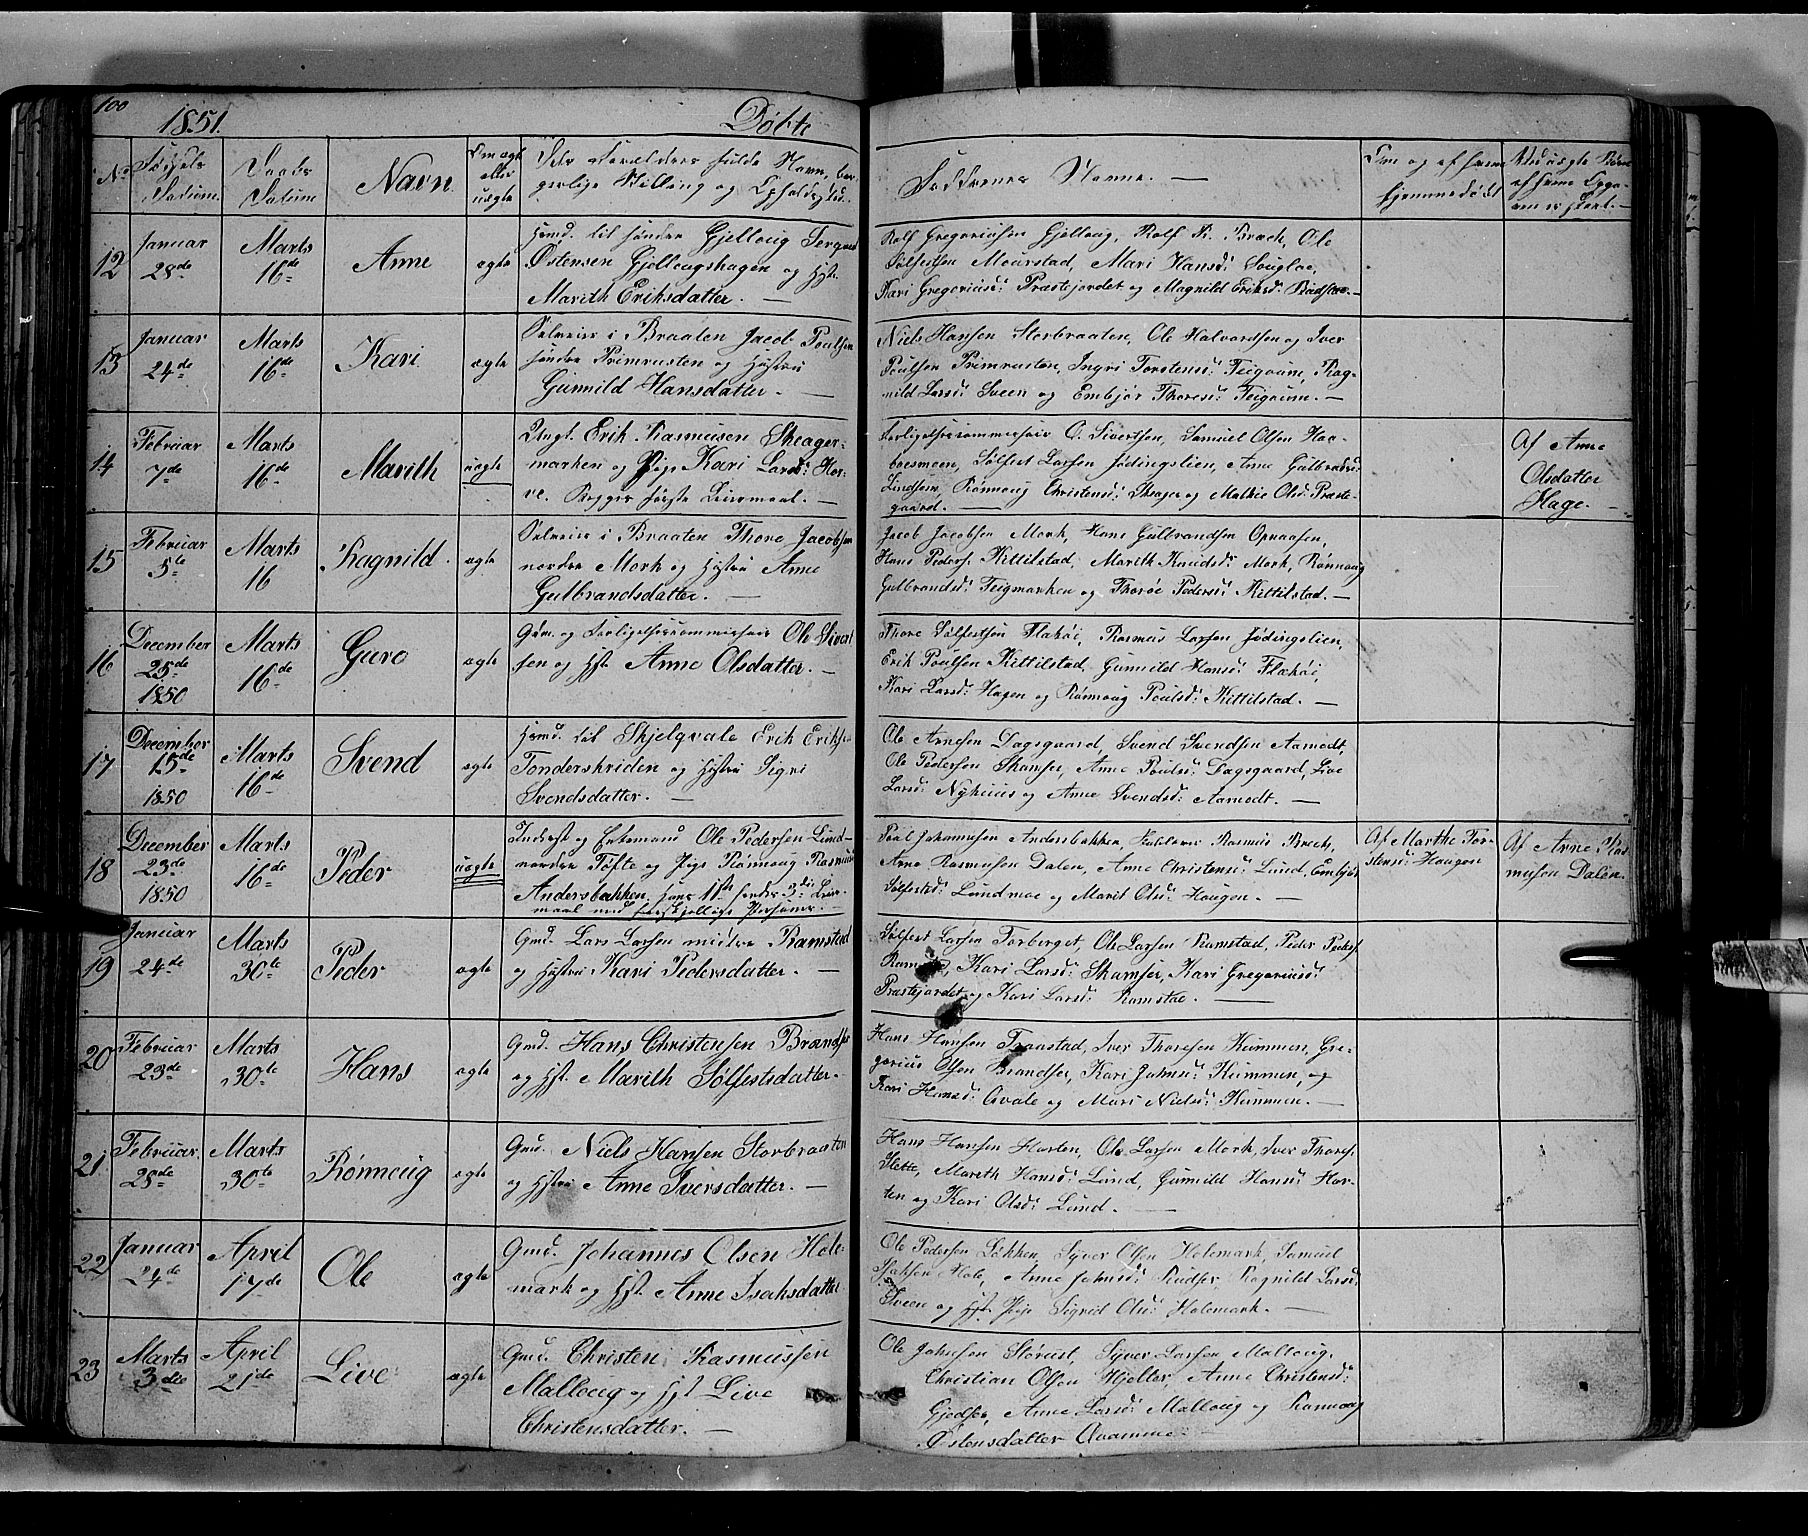 100
1851.
Døbte
No
Fødsels Datum
Daabs Datum
Navn.
Om ægte eller uægte
Forældres fulde Navn, borgerlige Stilling og Opholdssted.
Faddernes Navne. —
Om og af hvem hjemmedøbt
12
Januar 28de
Marts 16de
Anne
ægte
søndre Gjelloug
Østensen Gjellougshagen og Hst.
Marith Eriksdatter. —
Rolf Gregoriussen Gjelloug, Rolf R. Bræck, Ole
Sølfestsen Mourstad, Mari Hansd:
Kari Gregoriusd: Præstejordet og Magnild Eriksd:
13
Januar 24de
Marts 16de
Kari
ægte
Selveier i Braaten Jacob Poulsen
søndre Primrusten og Hustru
Gunnild Hansdatter. —
Niels Hansen Storbraaten, Ole Halvordsen og Iver
Poulsen Primrusten, Ingri Torstensd: Teigoum, Rag-
nild Larsd: Sveen og Embjør Thoresd: Teigoum. —
14
Februar 7de
Marts 16de
Marith
uægte
Ungk. Erik Rasmusen Skeager-
marken og Pige Kari Larsd: Hor-
ve. Begges første Leiermaal. —
Forligelsescommissair O. Sivertsen, Samuel Olsen
Sølfest Larsen Jødingslien, Anne Gulbrandsd:
Lindsøen, Rønnoug Christensd: Skeager og Mathie Olsd: Præste-
gaard. —
Af Anne
Olsdatter
Hage. —
15
Februar 5te
Marts 16
Ragnild
ægte
Selveier i Braaten Thore Jacobsen
nordre Mork og Hustru Anne
Gulbrandsdatter. —
Jacob Jacobsen Mork, Hans Gulbrandsen Opnaasen,
Hans Peders. Kittilstad, Marith Knudsd: Mork, Rønnoug
Gulbrandsd: Teigmarken og Thorøe Pedersd: Kittilstad. —
16
December 25de 1850
Marts 16de
Guro
ægte
Gm. og Forligelsescommissair Ole Sivert-
sen og Hst. Anne Olsdatter. —
Thore Sølfestsen Flakøi, Rasmus Larsen Jødingslien,
Erik Poulsen Kittilstad, Gunnild Hansd: Flakøi,
Kari Larsd: Hagen og Rønnoug Poulsd: Kittilstad. —
17
December 15de 1850
Marts 16de
Svend
ægte
Skjelqvale Erik Eriksen
Tonderskriden og Hustru Sigri
Svendsdatter. —
Ole Arnesen Dagsgaard, Svend Svendsen Aamodt,
Ole Pedersen Skamser, Anne Poulsd: Dagsgaard, Live
Larsd: Nyhuus og Anne Svendsd: Aamodt. —
18
December 23de 1850
Marts 16de
Peder
uægte
Inderst og Enkemand Ole Pedersen Lund
nordre Tofte og Pige Rønnoug Rasmusd:
Andersbakken, hans 1ste hendes 3die Leier-
maal med forskjellige Personer. —
Poul Johannesen Andersbakken, Rasmus Bræck,
Arne Rasmusen Dalen, Anne Christensd: Lund, Embjør
Sølfestsd: Lundmoe og Marit Olsd: Haugen. —
Af Marthe Tor-
stensd: Haugen
Af Arne Ras-
musen Dalen.
19
Januar 24de
Marts 30te
Peder
ægte
Gmd. Lars Larsen midtre Ramstad
og Hustru Kari Pedersdatter. —
Sølfest Larsen Forberget, Ole Larsen Ramstad, Peder Peders.
Kari Larsd: Skamser, Kari Gregoriusd:
Præstejordet og Kari Larsd: Ramstae. —
20
Februar 23de
Marts 30te
Hans
ægte
Gmd. Hans Christensen Brandser
og Hst. Marith Sølfestsdatter. —
Hans Hansen Traastad, Iver Thoresen Kummen, Gre-
gorius Olsen Brandser, Kari Johnsd: Kummen, og
Kari Hansd: Qvale og Mari Nielsd: Kummen. —
21
Februar 28de
Marts 30te
Rønnoug
ægte
Gmd. Niels Hansen Storbraaten
og Hstru Anne Iversdatter. —
Hans Hansen Horten, Ole Larsen Mork, Iver Thores.
Slette, Mareth Hansd: Lund, Gunnild Hansd: Hor-
ten og Kari Olsd: Lund. —
22
Januar 24de
April 17de
Ole
ægte
Gmd. Johannes Olsen Hole-
mark og Hst. Anne Isaksdatter
Ole Pedersen Løkken, Syver Olsen Holemark, Samuel
Isaksen Hole, Anne Johnsd: Ragnild Larsd:
Sveen og Pige Sigrid Olsd: Holemark. —
23
Marts 3die
April 21de
Live
ægte
Gmd. Christen Rasmussen
Malloug og Hst Live
Christensdatter. —
Ole Johnsen Størust, Syver Larsen Malloug,
Christian Olsen Hjeller, Anne Christensd:
Gjedser, Anne Larsd: Malloug og Rønnoug
Østensdatter Qvamme. —